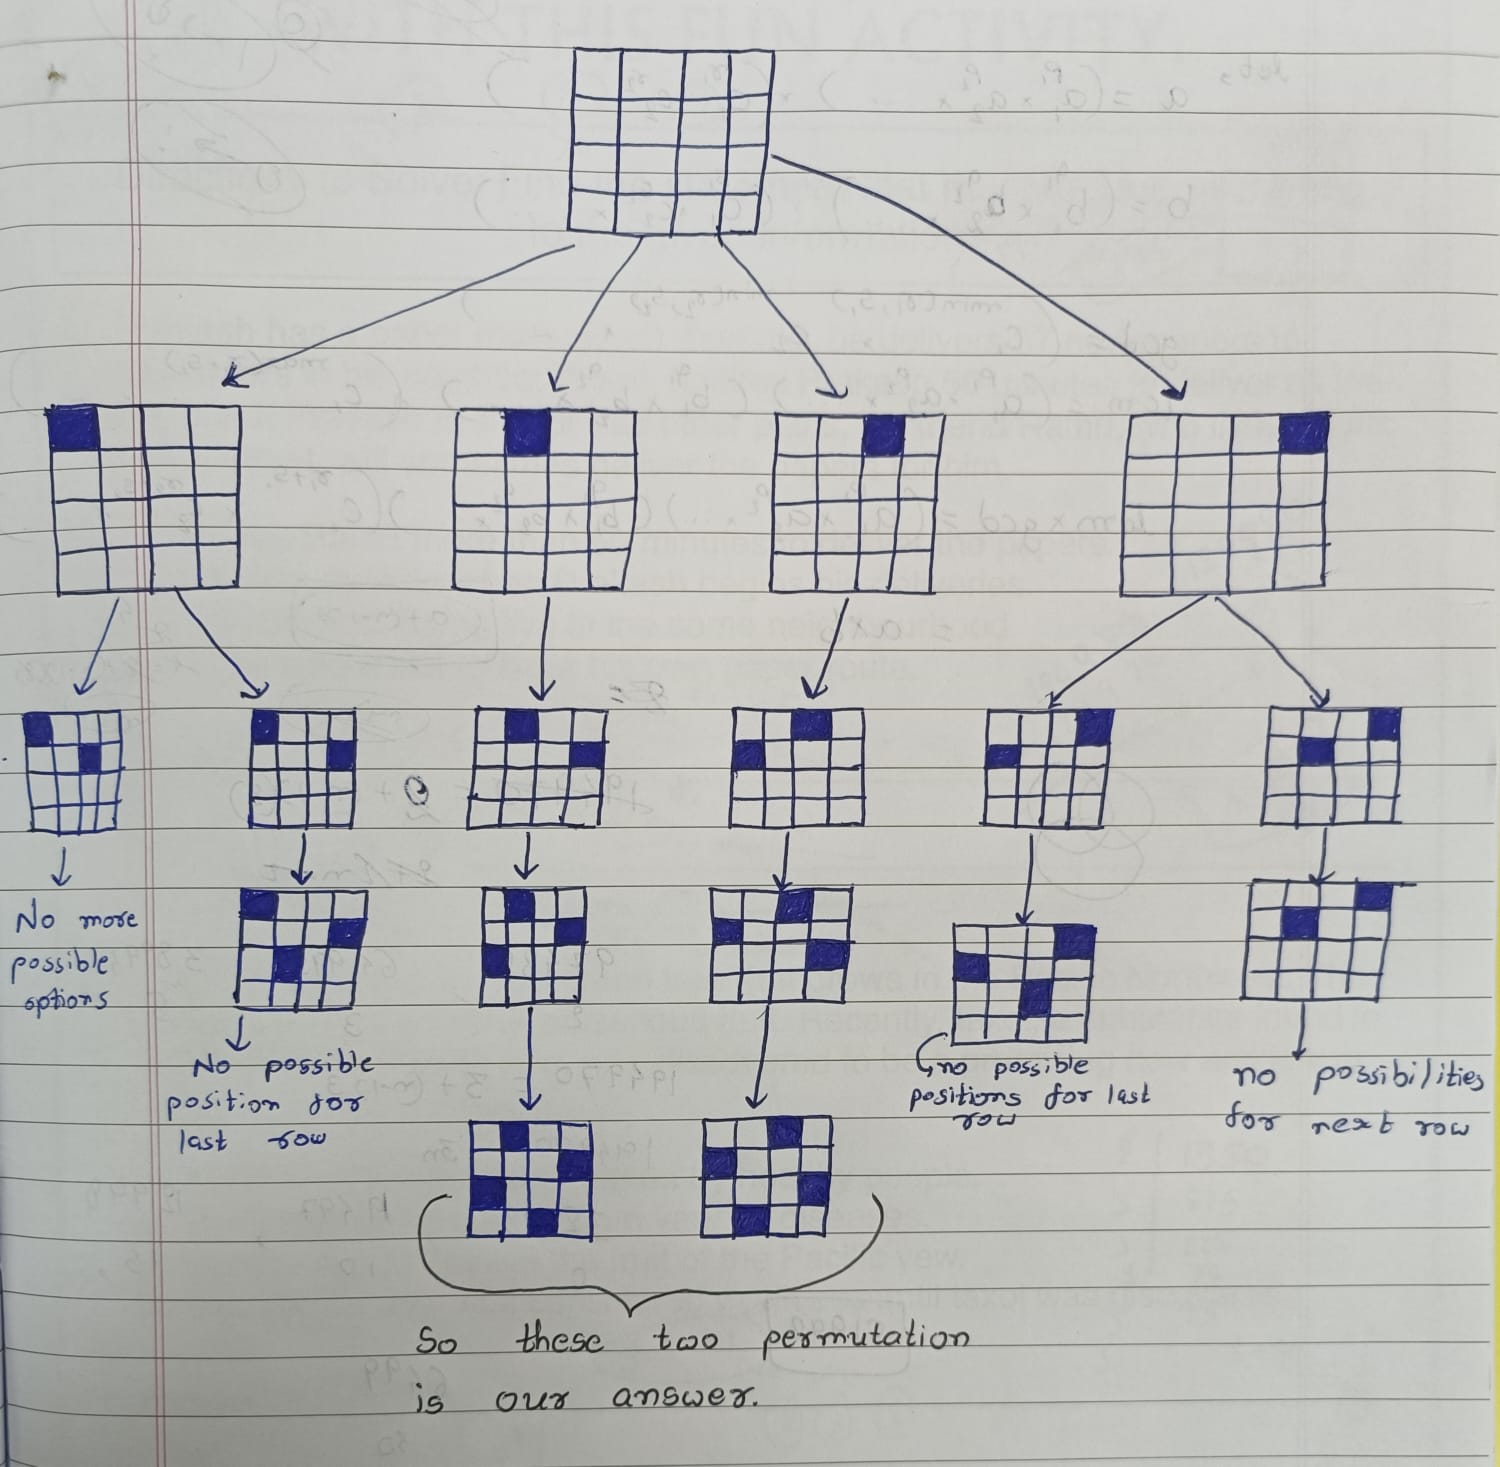 No more
possible
options
No possible
position for
last row
no possible
positions for last
row
no possibilities
for next row
So these two permutation
is our answer.